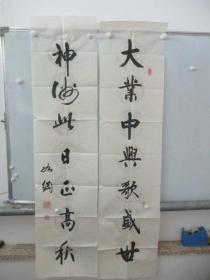 大業中興歌盛世
神州此日正高秋